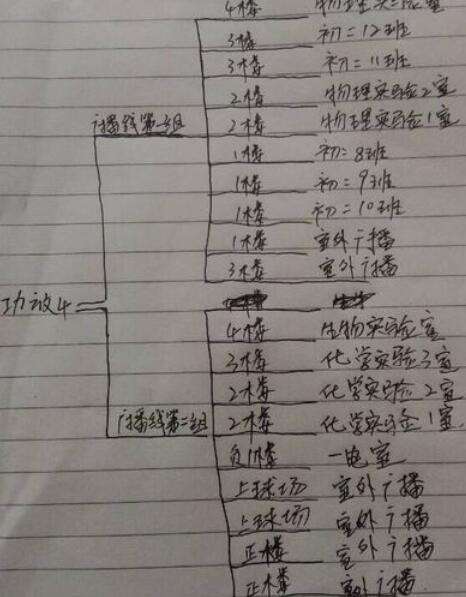 4楼 物理实验室
3楼 初二12班
3楼 初二11班
2楼 物理实验2室
广播线第一组 2楼 物理实验1室
1楼 初二8班
1楼 初二9班
1楼 初二10班
1楼 室外广播
3楼 室外广播
功放4
4楼 生物实验室
3楼 化学实验3室
2楼 化学实验2室
广播线第二组 2楼 化学实验1室
负1楼 一电室
上球场 室外广播
上球场 室外广播
正楼 室外广播
正楼 室外广播